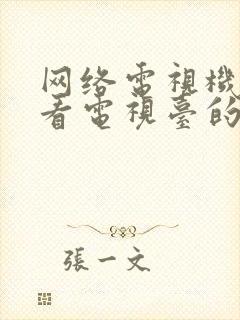 网络電視機
看電視臺的
張一文